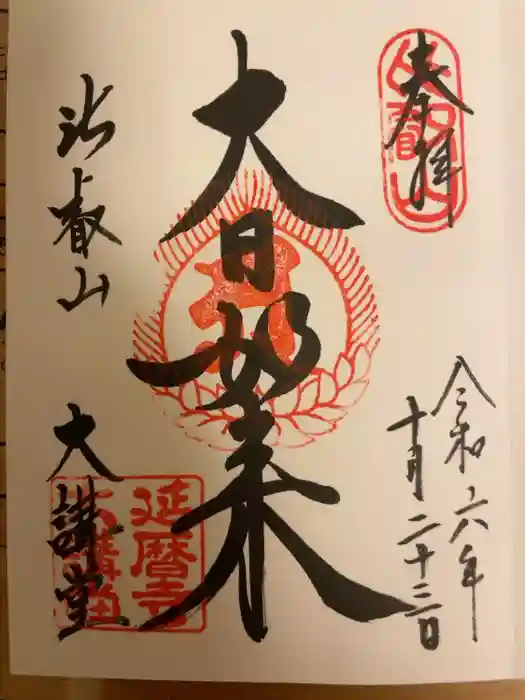 奉拝
比叡山
令和六年
十月二十三日
大日如来
比叡山
大講堂
延暦寺
大講堂